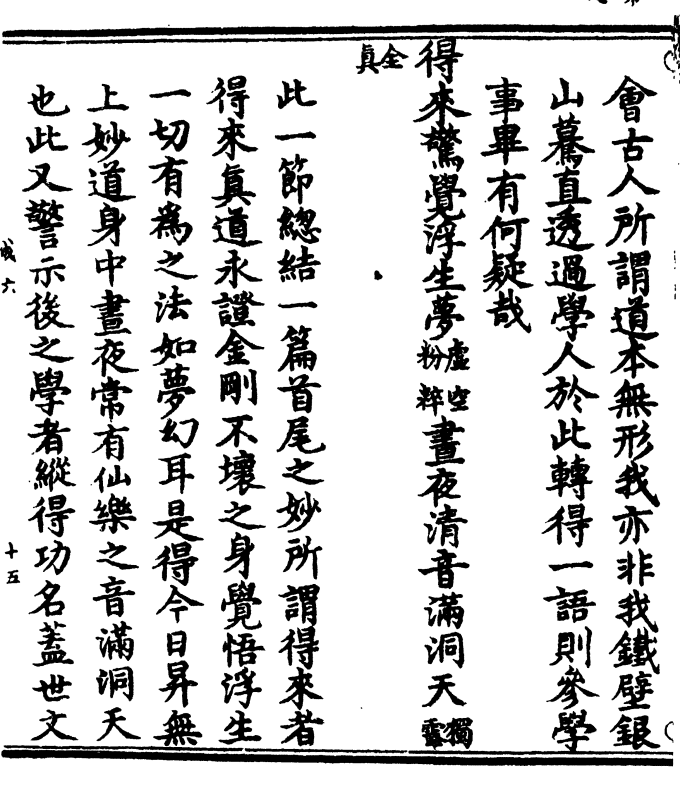 會古人所謂道本無形我亦非我鐵壁銀
山驀直透過學人於此轉得一語則參學
事畢有何疑哉
得來驚覺浮生夢虛空粉粹晝夜清音滿洞天獨露
全真
此一節總結一篇首尾之妙所謂得來者
得來真道永證金剛不壞之身覺悟浮生
一切有為之法如夢幻耳是得今日昇無
上妙道身中晝夜常有仙樂之音滿洞天
也此又警示後之學者縱得功名蓋世文
十五